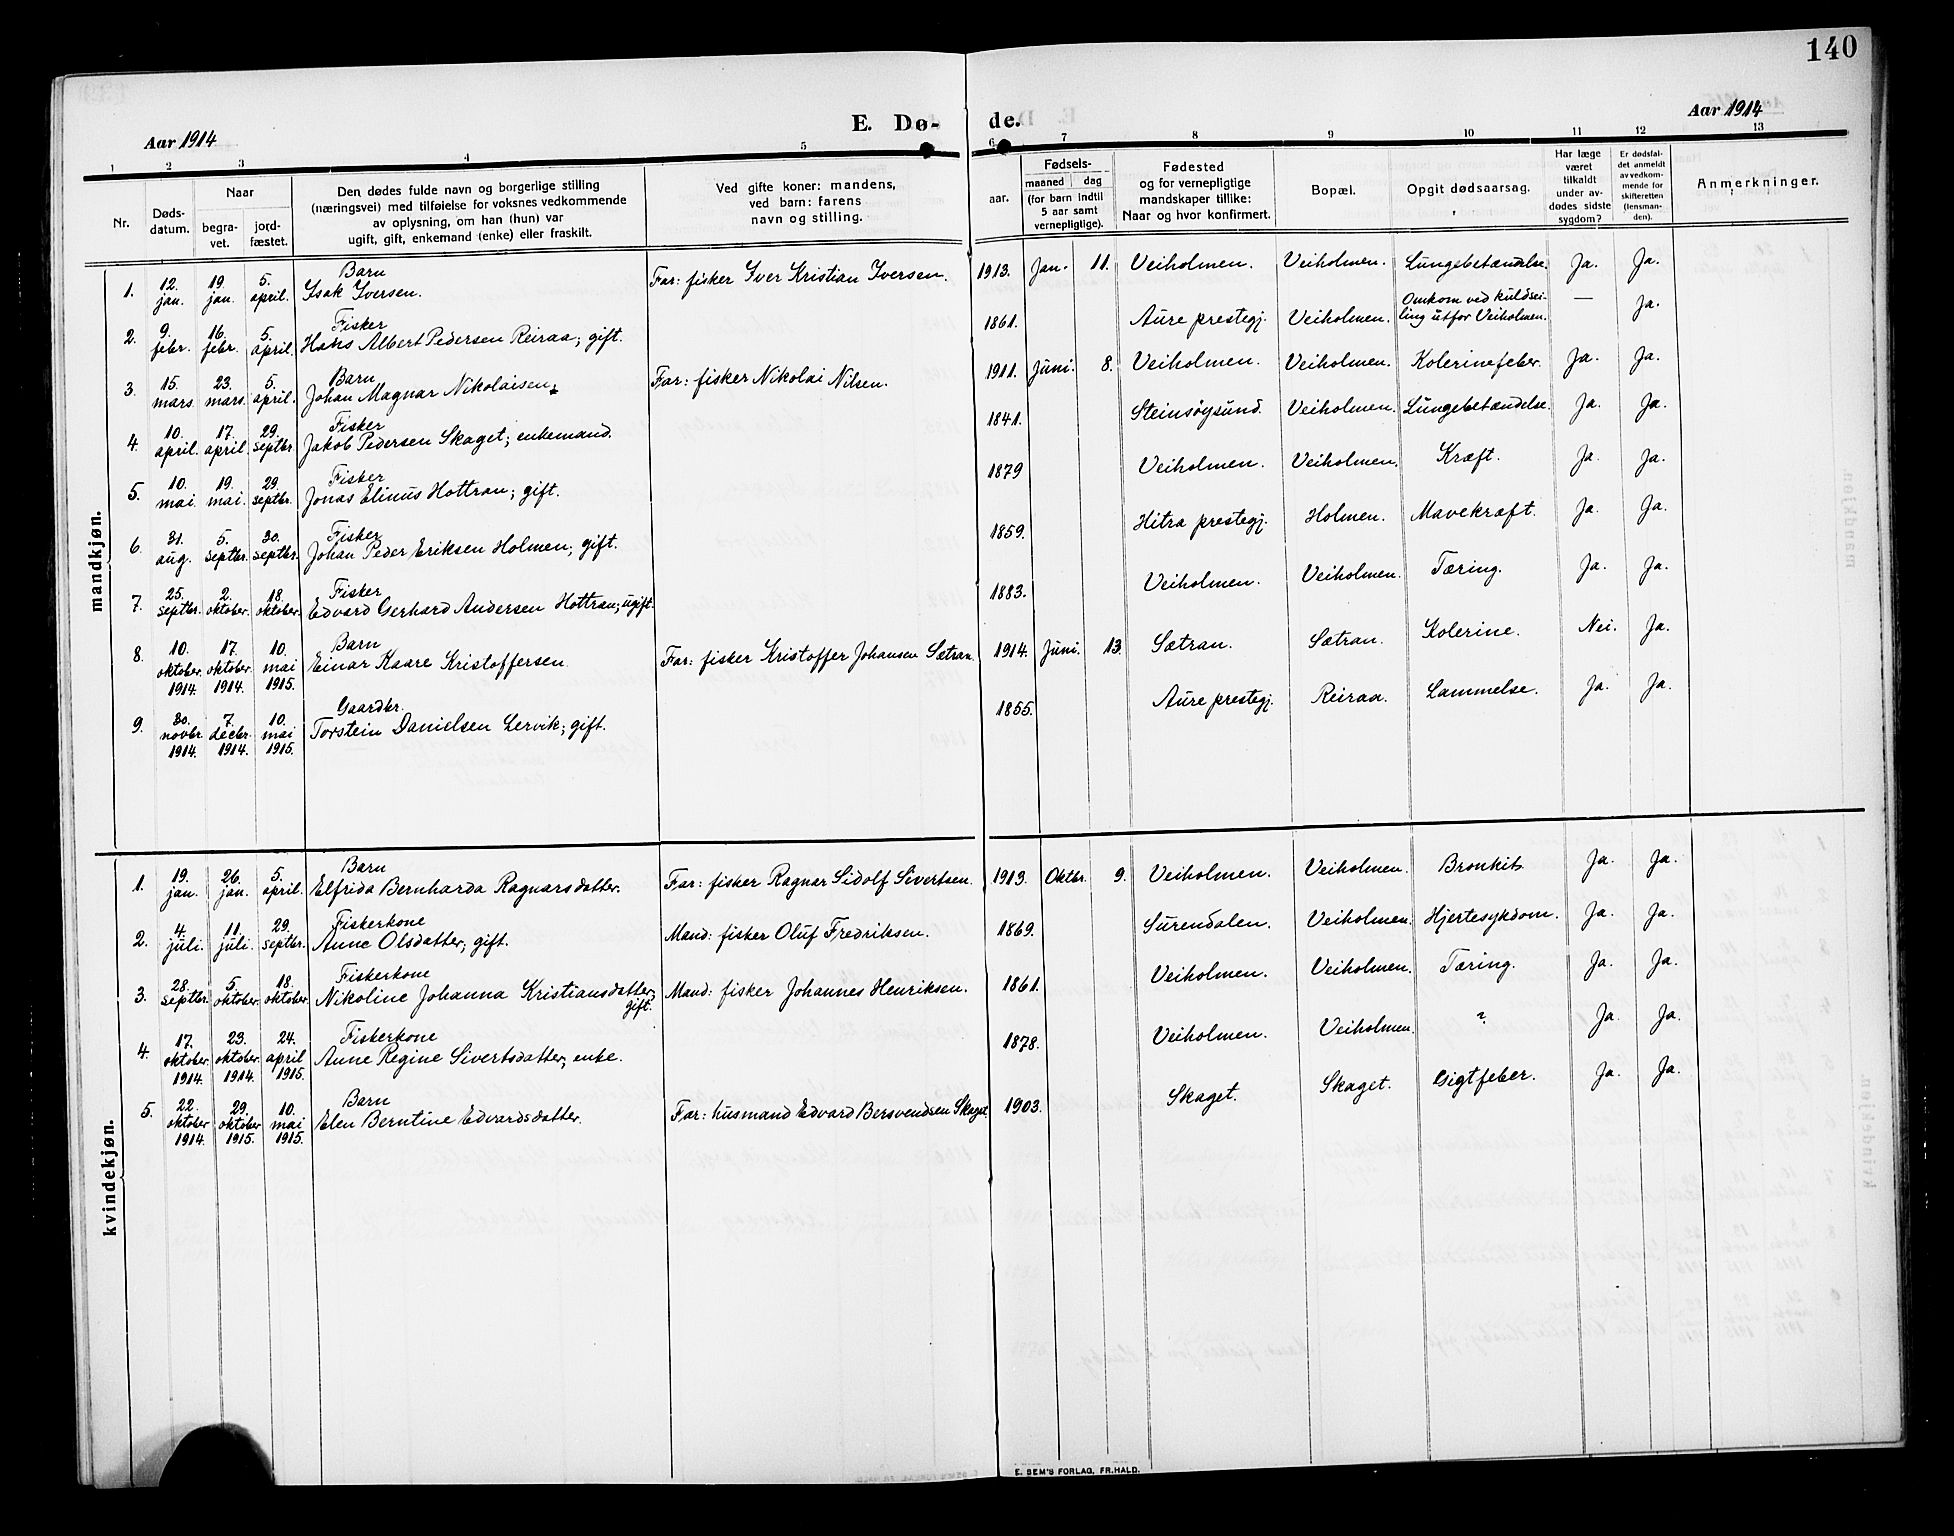 140
E. Døde.
Aar 1914
Aar 1914
1 2 3 4 5 6 7 8 9 10 11 12 13
Nr.
Døds-
datum.
Naar
begra-
vet.
jord-
fæstet.
Den dødes fulde navn og borgerlige stilling
(næringsvei) med tilføielse for voksnes vedkommende
av oplysning, om han (hun) var
ugift, gift, enkemand (enke) eller fraskilt.
Ved gifte koner: mandens,
ved barn: farens
navn og stilling.
aar.
Fødsels-
maaned dag
(for barn indtil
5 aar samt
vernepligtige).
Fødested
og for vernepligtige
mandskaper tillike:
Naar og hvor konfirmert.
Bopæl.
Opgit dødsaarsag.
Har læge
været
tilkaldt
under av-
dødes sidste
sygdom?
Er dødsfal-
det anmeldt
av vedkom-
mende for
skifteretten
(lensman-
den).
Anmerkninger.
mandkjøn.
1. 12. jan. 19. jan. 5. april. Barn
Isak Iversen. Far: fisker Iver Kristian Iversen. 1913. Jan. 11. Veiholmen. Veiholmen. Lungebetændelse. Ja. Ja.
2. 9. febr. 16. febr. 5. april. Fisker
Hans Albert Pedersen Reiraa; gift. 1861. Aure prestegj. Veiholmen. Omkom ved kuldsei-
ling utfor Veiholmen. — Ja.
3. 15. mars. 23. mars. 5. april. Barn
Johan Magnar Nikolaisen. Far: fisker Nikolai Nilsen. 1911. Juni. 8. Veiholmen. Veiholmen. Kolerinefeber. Ja. Ja.
4. 10. april. 17. april. 29. septbr. Fisker
Jakob Pedersen Skaget; enkemand. 1841. Steinsøysund. Veiholmen. Lungebetændelse. Ja. Ja.
5. 10. mai. 19. mai. 29. septbr. Fisker
Jonas Elinus Hottran; gift. 1879 Veiholmen. Veiholmen. Kræft. Ja. Ja.
6. 31. aug. 5. septbr. 30. septbr. Fisker
Johan Peder Eriksen Holmen; gift. 1859. Hitra prestegj. Holmen. Mavekræft. Ja. Ja.
7. 25. septbr. 2. oktober. 18. oktober. Fisker
Edvard Gerhard Andersen Hottran; ugift. 1883. Veiholmen. Veiholmen. Tæring. Ja. Ja.
8. 10. oktober. 1914. 17. oktober. 1914. 10. mai 1915. Barn
Einar Kaare Kristoffersen. Far: fisker Kristoffer Johansen Sætran. 1914. Juni. 13. Sætran. Sætran. Kolerine. Nei. Ja.
9. 30. novbr. 1914. 7. decbr. 1914. 10. mai 1915. Gaardbr.
Torstein Danielsen Lervik; gift. 1855. Aure prestegj. Reiraa. Lammelse. Ja. Ja.
kvindekjøn.
1. 19. jan. 26. jan. 5. april. Barn
Elfrida Bernharda Ragnarsdatter. Far: fisker Ragnar Sidolf Sivertsen. 1913. Oktbr. 9. Veiholmen. Veiholmen. Bronkit. Ja. Ja.
2. 4. juli. 11. juli. 29. septbr. Fiskerkone
Anne Olsdatter; gift. Mand: fisker Oluf Fredriksen. 1869. Surendalen. Veiholmen. Hjertesykdom. Ja. Ja.
3. 28. septbr. 5. oktober. 18. oktober. Fiskerkone
Nikoline Johanna Kristiansdatter;
gift. Mand: fisker Johannes Henriksen. 1861. Veiholmen. Veiholmen. Tæring. Ja. Ja.
4. 17. oktober. 1914. 23. oktober. 1914. 24. april 1915. Fiskerkone
Anne Regine Sivertsdatter; enke. 1878. Veiholmen. Veiholmen. ? Ja. Ja.
5. 22. oktober 1914. 29. oktober 1915. 10. mai 1915. Barn
Elen Berntine Edvardsdatter. Far: husmand Edvard Bersvendsen Skaget. 1903. Skaget. Skaget. Gigtfeber. Ja. Ja.
E. SEM'S FORLAG, FR.HALD.